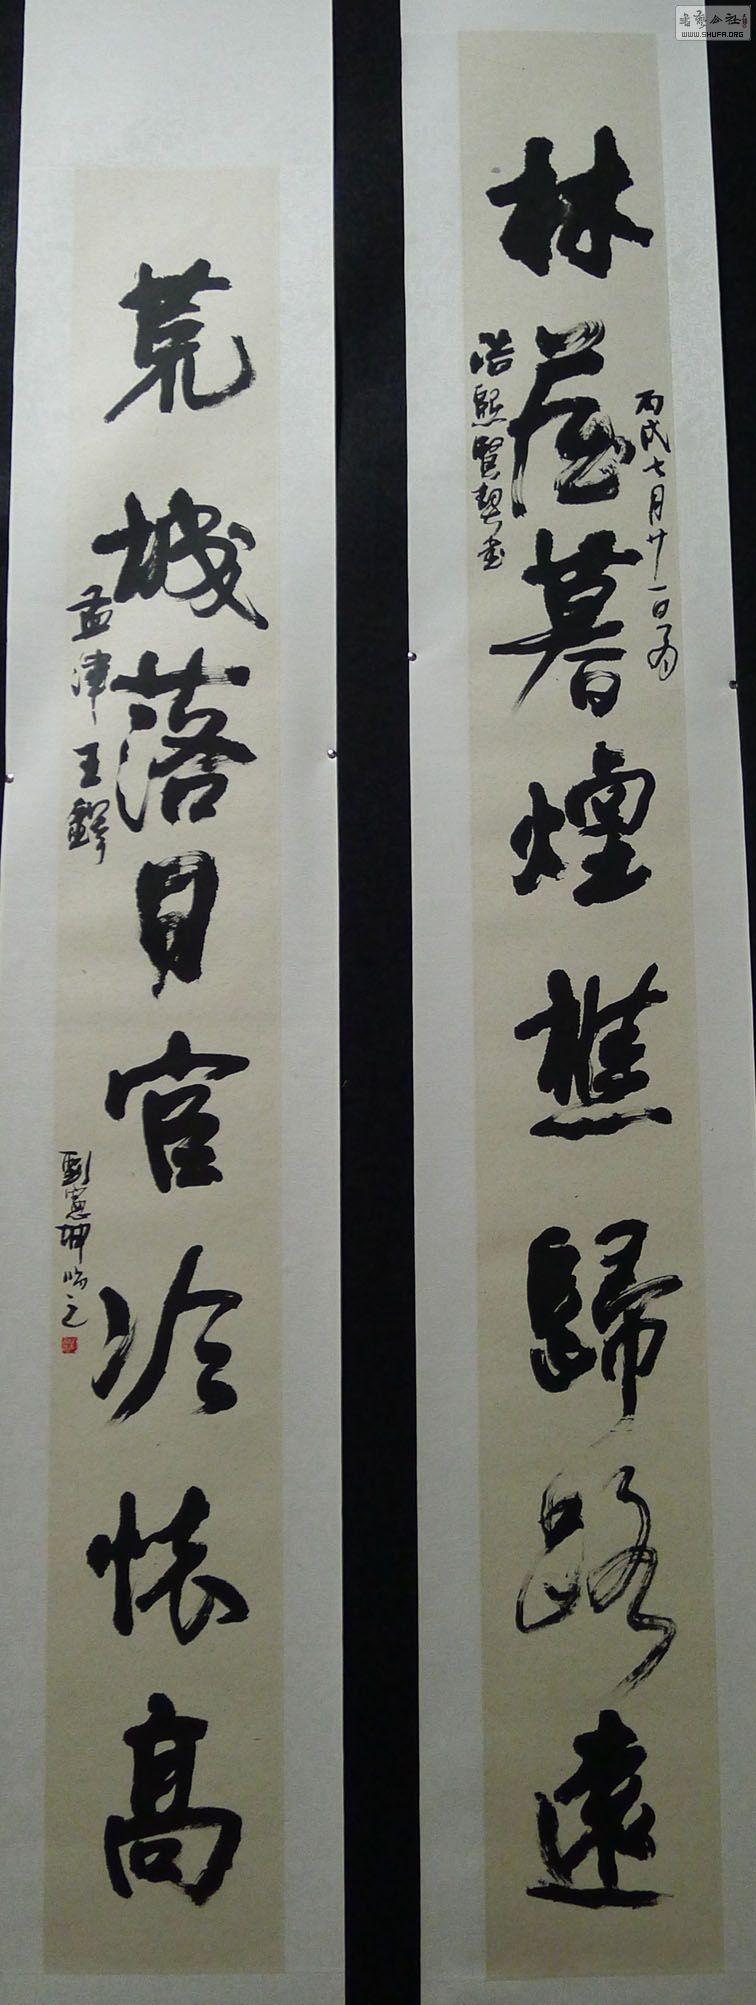 林屋暮煙樵歸路遠
丙戌七月廿一日為
浩熙賢契書
荒城落日官冷懷高
孟津王鐸
劉憲坤臨之
書艺公社
WWW.SHUFA.ORG